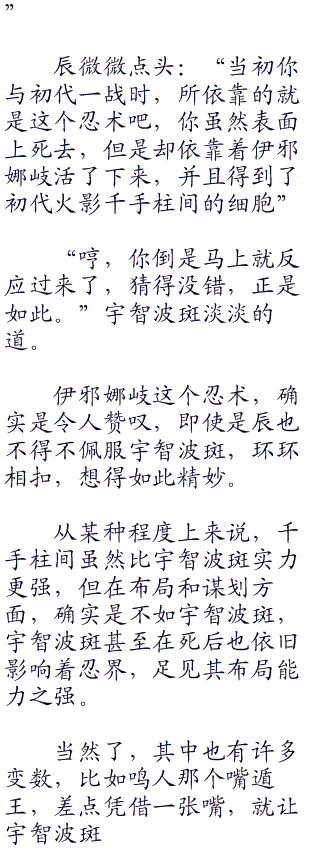 ”
辰微微点头：“当初你
与初代一战时，所依靠的就
是这个忍术吧，你虽然表面
上死去，但是却依靠着伊邪
娜岐活了下来，并且得到了
初代火影千手柱间的细胞”
“哼，你倒是马上就反
应过来了，猜得没错，正是
如此。”宇智波斑淡淡的
道。
伊邪娜岐这个忍术，确
实是令人赞叹，即使是辰也
不得不佩服宇智波斑，环环
相扣，想得如此精妙。
从某种程度上来说，千
手柱间虽然比宇智波斑实力
更强，但在布局和谋划方
面，确实是不如宇智波斑，
宇智波斑甚至在死后也依旧
影响着忍界，足见其布局能
力之强。
当然了，其中也有许多
变数，比如鸣人那个嘴遁
王，差点凭借一张嘴，就让
宇智波斑